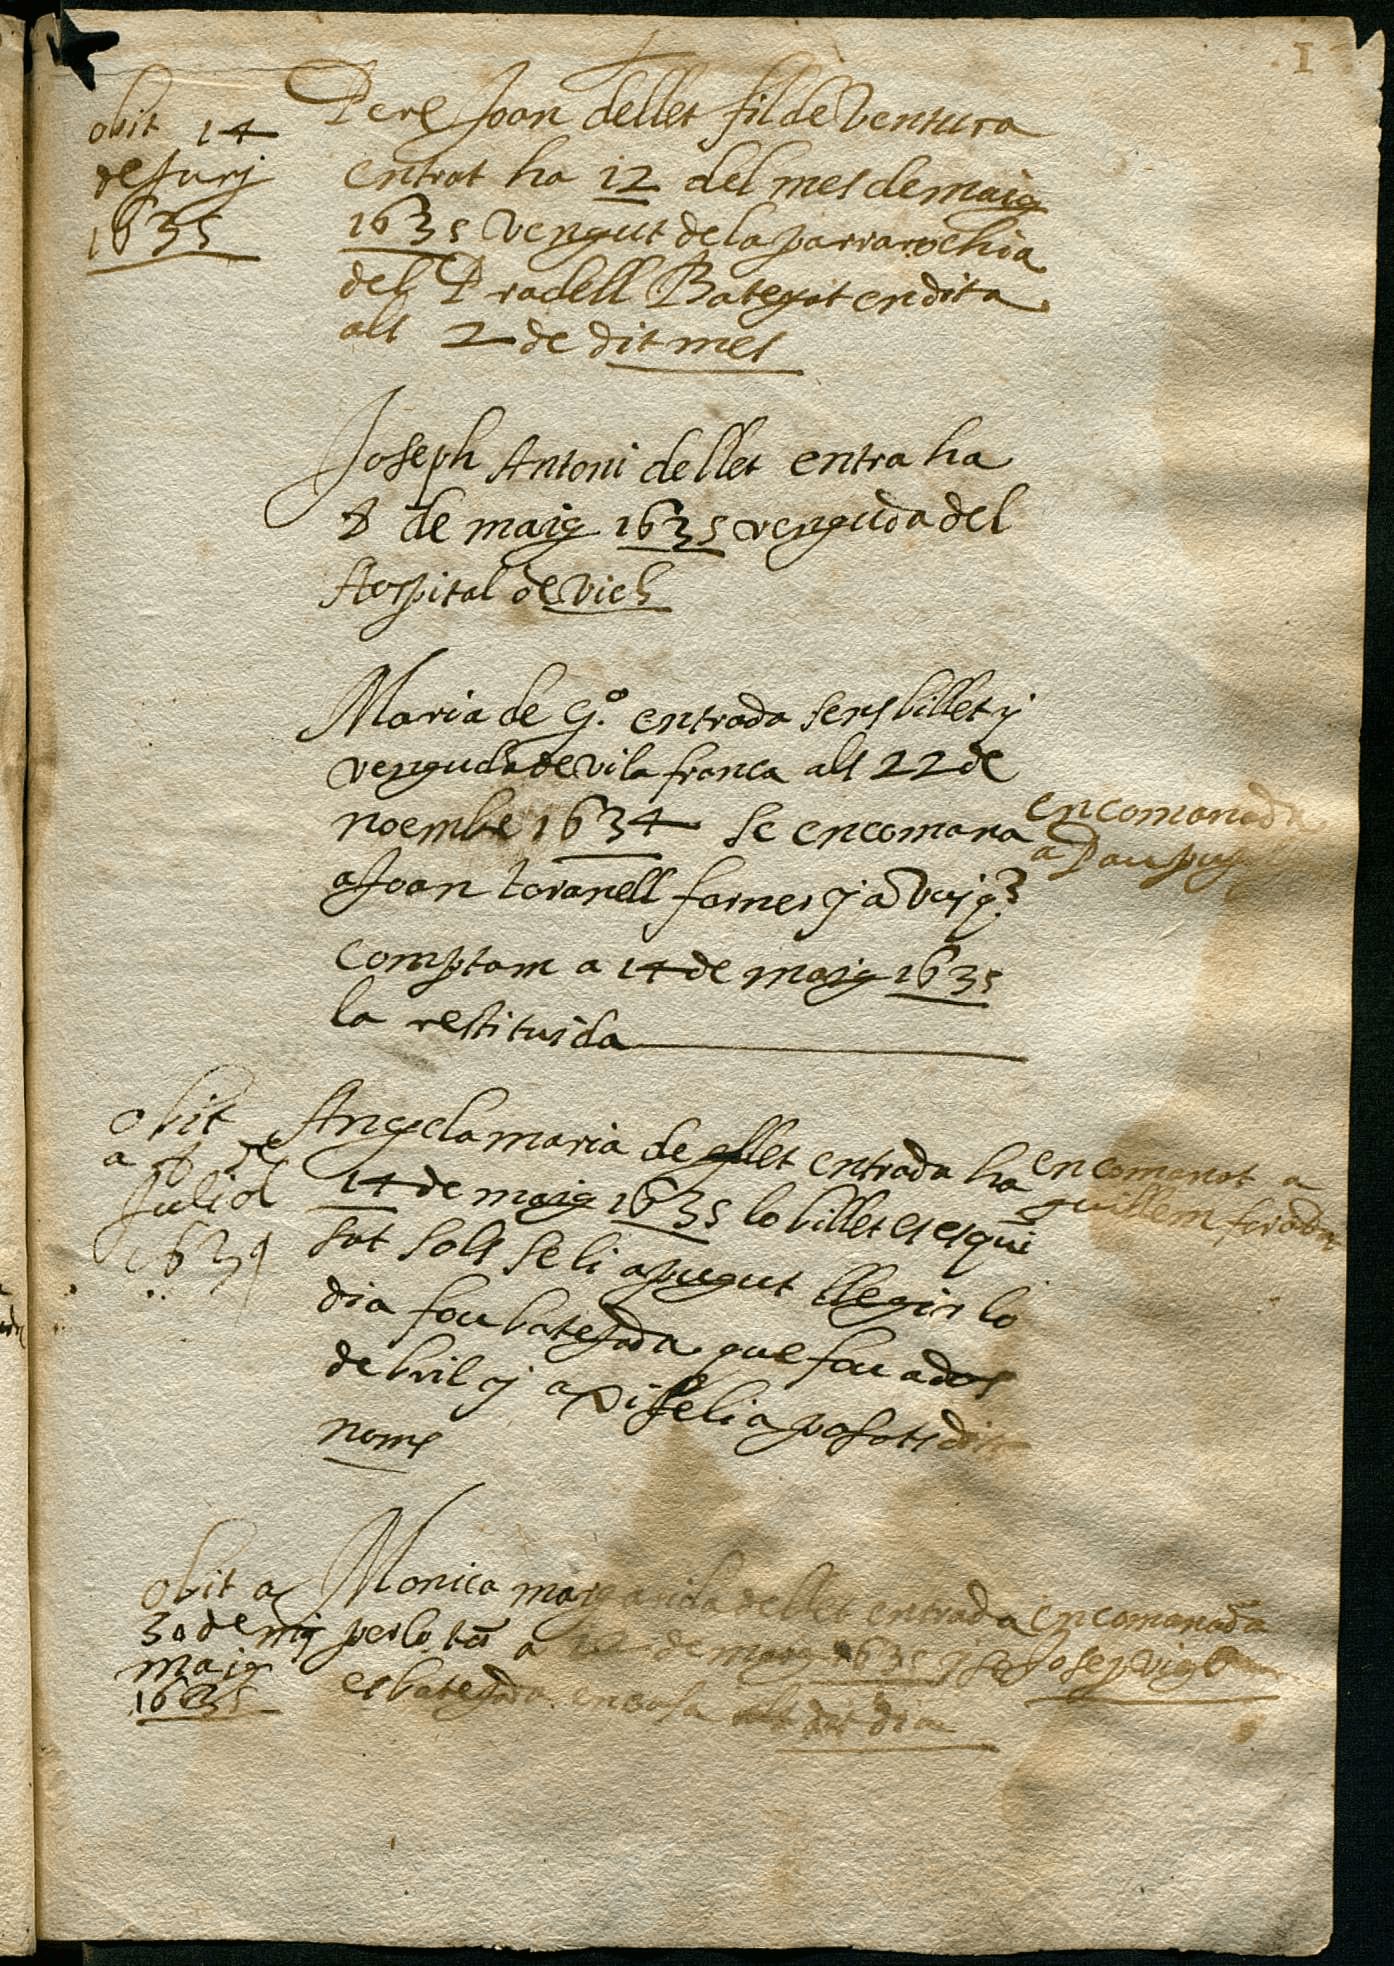 1
obit 14
de Junj
1635
Pere Joan dellet fil de Ventura
entrat ha 12 del mes de maig
1635 vengut de la parrarochia
del Pradell Bategat en dita
als 2 de dit mes
Joseph Antoni de llet entra ha
8 de maig 1635 venguda del
Hospital de Vich
Maria de G.º entrada sens billet y
venguda de vila franca als 22 de
noembre 1634 se encomana
a Joan toranell forner y a vuy q.
comptam a 14 de maig 1635
la restituida
encomanada
a Pau puig
obit
a 8 de
Juliol
1639
Angela maria de llet entrada ha
14 de maig 1635 lo billet es esquin
sat sols se li a pugut llegir lo
dia fou batejada que fou a dos
de bril y a xi se li a posats dit
nom
encomanat a
guillem forada
obit a
30 de mig
maig
1635
Monica margarida de llet entrada
per lo tor a de maig 1635 y se
es batejada en casa dit dia
encomanada
Josep vigo